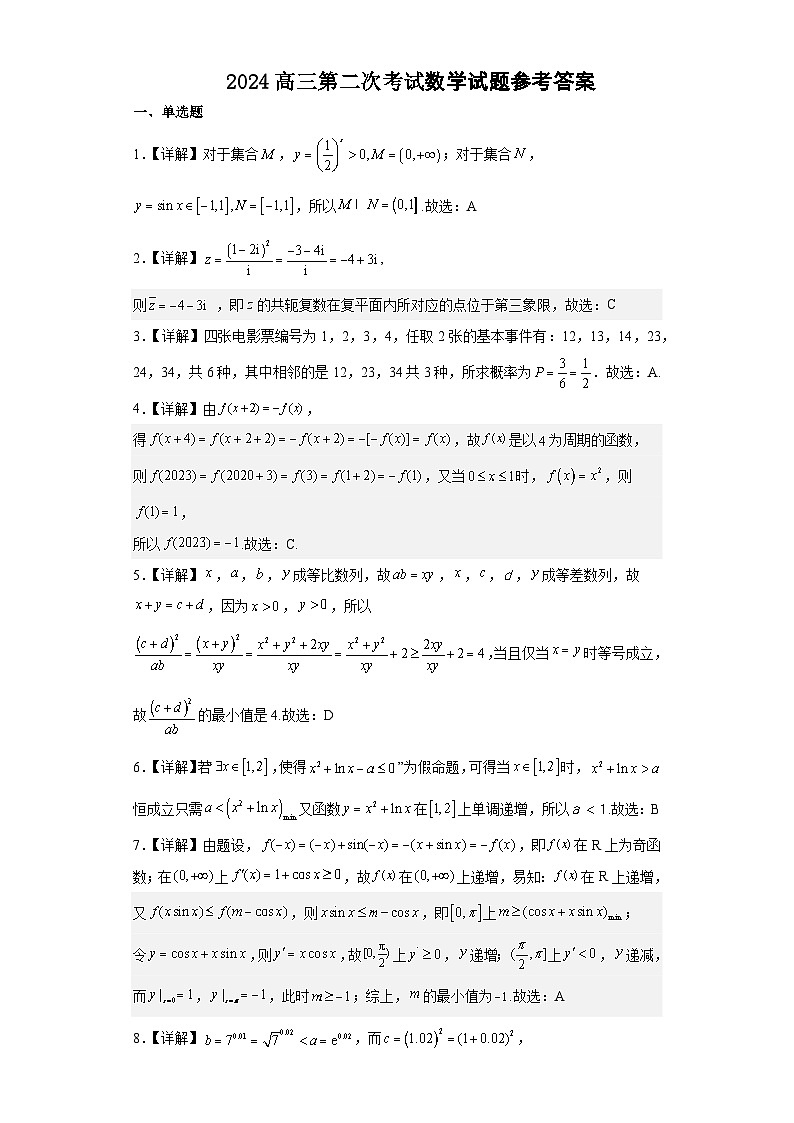 2024 高三第二次考试数学试题参考答案
一、单选题
1.【详解】对于集合 M ，y = (1/2)^x > 0, M = (0,+∞)；对于集合 N ，
y = sin x ∈ [−1,1], N = [−1,1]，所以 M I N = (0,1] .故选：A
2.【详解】z = (1−2i)²/i = (−3−4i)/i = −4+3i，
则 z̄ = −4−3i ，即 z 的共轭复数在复平面内所对应的点位于第三象限，故选：C
3.【详解】四张电影票编号为 1，2，3，4，任取 2 张的基本事件有：12，13，14，23，
24，34，共 6 种，其中相邻的是 12，23，34 共 3 种，所求概率为 P = 3/6 = 1/2．故选：A.
4.【详解】由 f(x+2) = −f(x)，
得 f(x+4) = f(x+2+2) = −f(x+2) = −[−f(x)] = f(x)，故 f(x) 是以 4 为周期的函数，
则 f(2023) = f(2020+3) = f(3) = f(1+2) = −f(1)，又当 0 ≤ x ≤ 1 时， f(x) = x²，则
f(1) = 1，
所以 f(2023) = −1.故选：C.
5.【详解】 x，a，b，y 成等比数列，故 ab = xy ，x，c，d，y 成等差数列，故
x + y = c + d ，因为 x > 0 ，y > 0 ，所以
(c+d)²/ab = (x+y)²/xy = (x²+y²+2xy)/xy = (x²+y²)/xy + 2 ≥ 2xy/xy + 2 = 4 ,当且仅当 x = y 时等号成立，
故 (c+d)²/ab 的最小值是 4.故选：D
6.【详解】若“ ∃x ∈ [1,2] ,使得 x² + ln x − a ≤ 0 ”为假命题,可得当 x ∈ [1,2] 时， x² + ln x > a
恒成立只需 a < (x² + ln x)min 又函数 y = x² + ln x 在 [1,2] 上单调递增，所以 a < 1.故选：B
7.【详解】由题设， f(−x) = (−x) + sin(−x) = −(x + sin x) = −f(x)，即 f(x) 在 R 上为奇函
数；在 (0,+∞) 上 f′(x) = 1 + cos x ≥ 0 ，故 f(x) 在 (0,+∞) 上递增，易知：f(x) 在 R 上递增，
又 f(x sin x) ≤ f(m − cos x)，则 x sin x ≤ m − cos x，即 [0,π] 上 m ≥ (cos x + x sin x)min；
令 y = cos x + x sin x ,则 y′ = x cos x ,故 [0,π/2) 上 y′ ≥ 0 ，y 递增；(π/2,π] 上 y′ < 0 ，y 递减，
而 y|x=0 = 1，y|x=π = −1，此时 m ≥ −1；综上，m 的最小值为 −1.故选：A
8.【详解】 b = 7^0.01 = √7^0.02 < a = e^0.02，而 c = (1.02)² = (1+0.02)²，